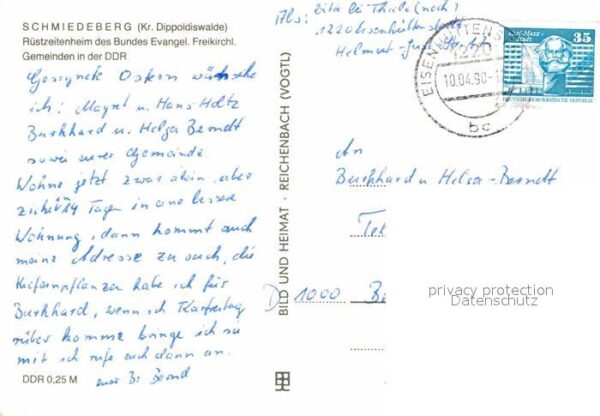 SCHMIEDEBERG (Kr. Dippoldiswalde)
Rüstzeitenheim des Bundes Evangel. Freikirchl.
Gemeinden in der DDR
Gesegnete Ostern wünsche
ich: Magret u. Hans Holtz
Burkhard u. Helga Berndt
sowie eurer Gemeinde
Wohne jetzt zwar allein, aber
ziehe in 14 Tagen in eine bessere
Wohnung, dann kommt auch
meine Adresse zu euch, die
habe ich für
Burkhard, wenn ich Karfreitag
rüber komme bringe ich sie
mit ich rufe euch dann an.
euer Br. Bernd
DDR 0,25 M
BILD UND HEIMAT · REICHENBACH (VOGTL)
Abs: bitte bei Thiele (nach)
1220 Eisenhüttenstadt
Helmut-Just-Str.
EISENHÜTTENSTADT
1220
10.04.90
bc
Karl-Marx-Stadt
35
DEUTSCHE DEMOKRATISCHE REPUBLIK
An
Burkhard u Helga Berndt
D 1000 B
privacy protection
Datenschutz